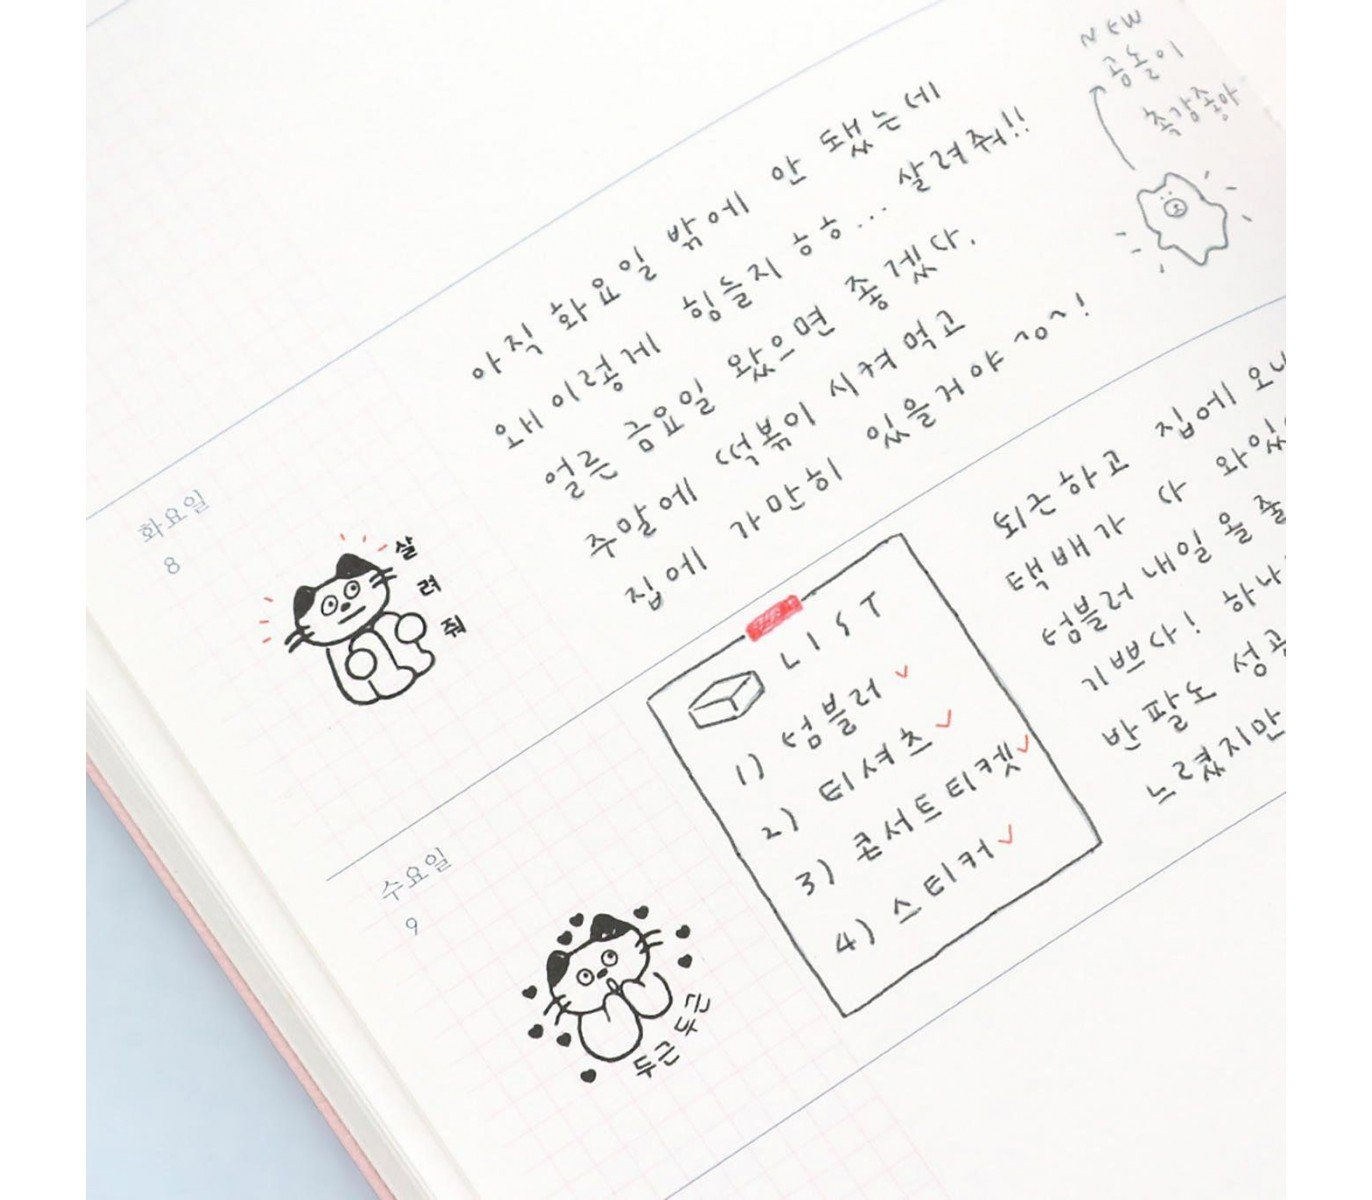 NEW
곰돌이
촉감좋아
아직 화요일 밖에 안 됐는데
왜 이렇게 힘들지 ㅎㅎ... 살려줘!!
얼른 금요일 왔으면 좋겠다.
주말에 떡볶이 시켜먹고
집에 가만히 있을거야 ~ㅇ~!
화요일
8
살
려
줘
퇴근하고 집에 오니
택배가 다 와있
텀블러 내일 올 줄
기쁘다! 하나
반팔도 성공
느렸지만
LIST
1) 텀블러 ✓
2) 티셔츠 ✓
3) 콘서트 티켓 ✓
4) 스티커 ✓
수요일
9
두근 두근